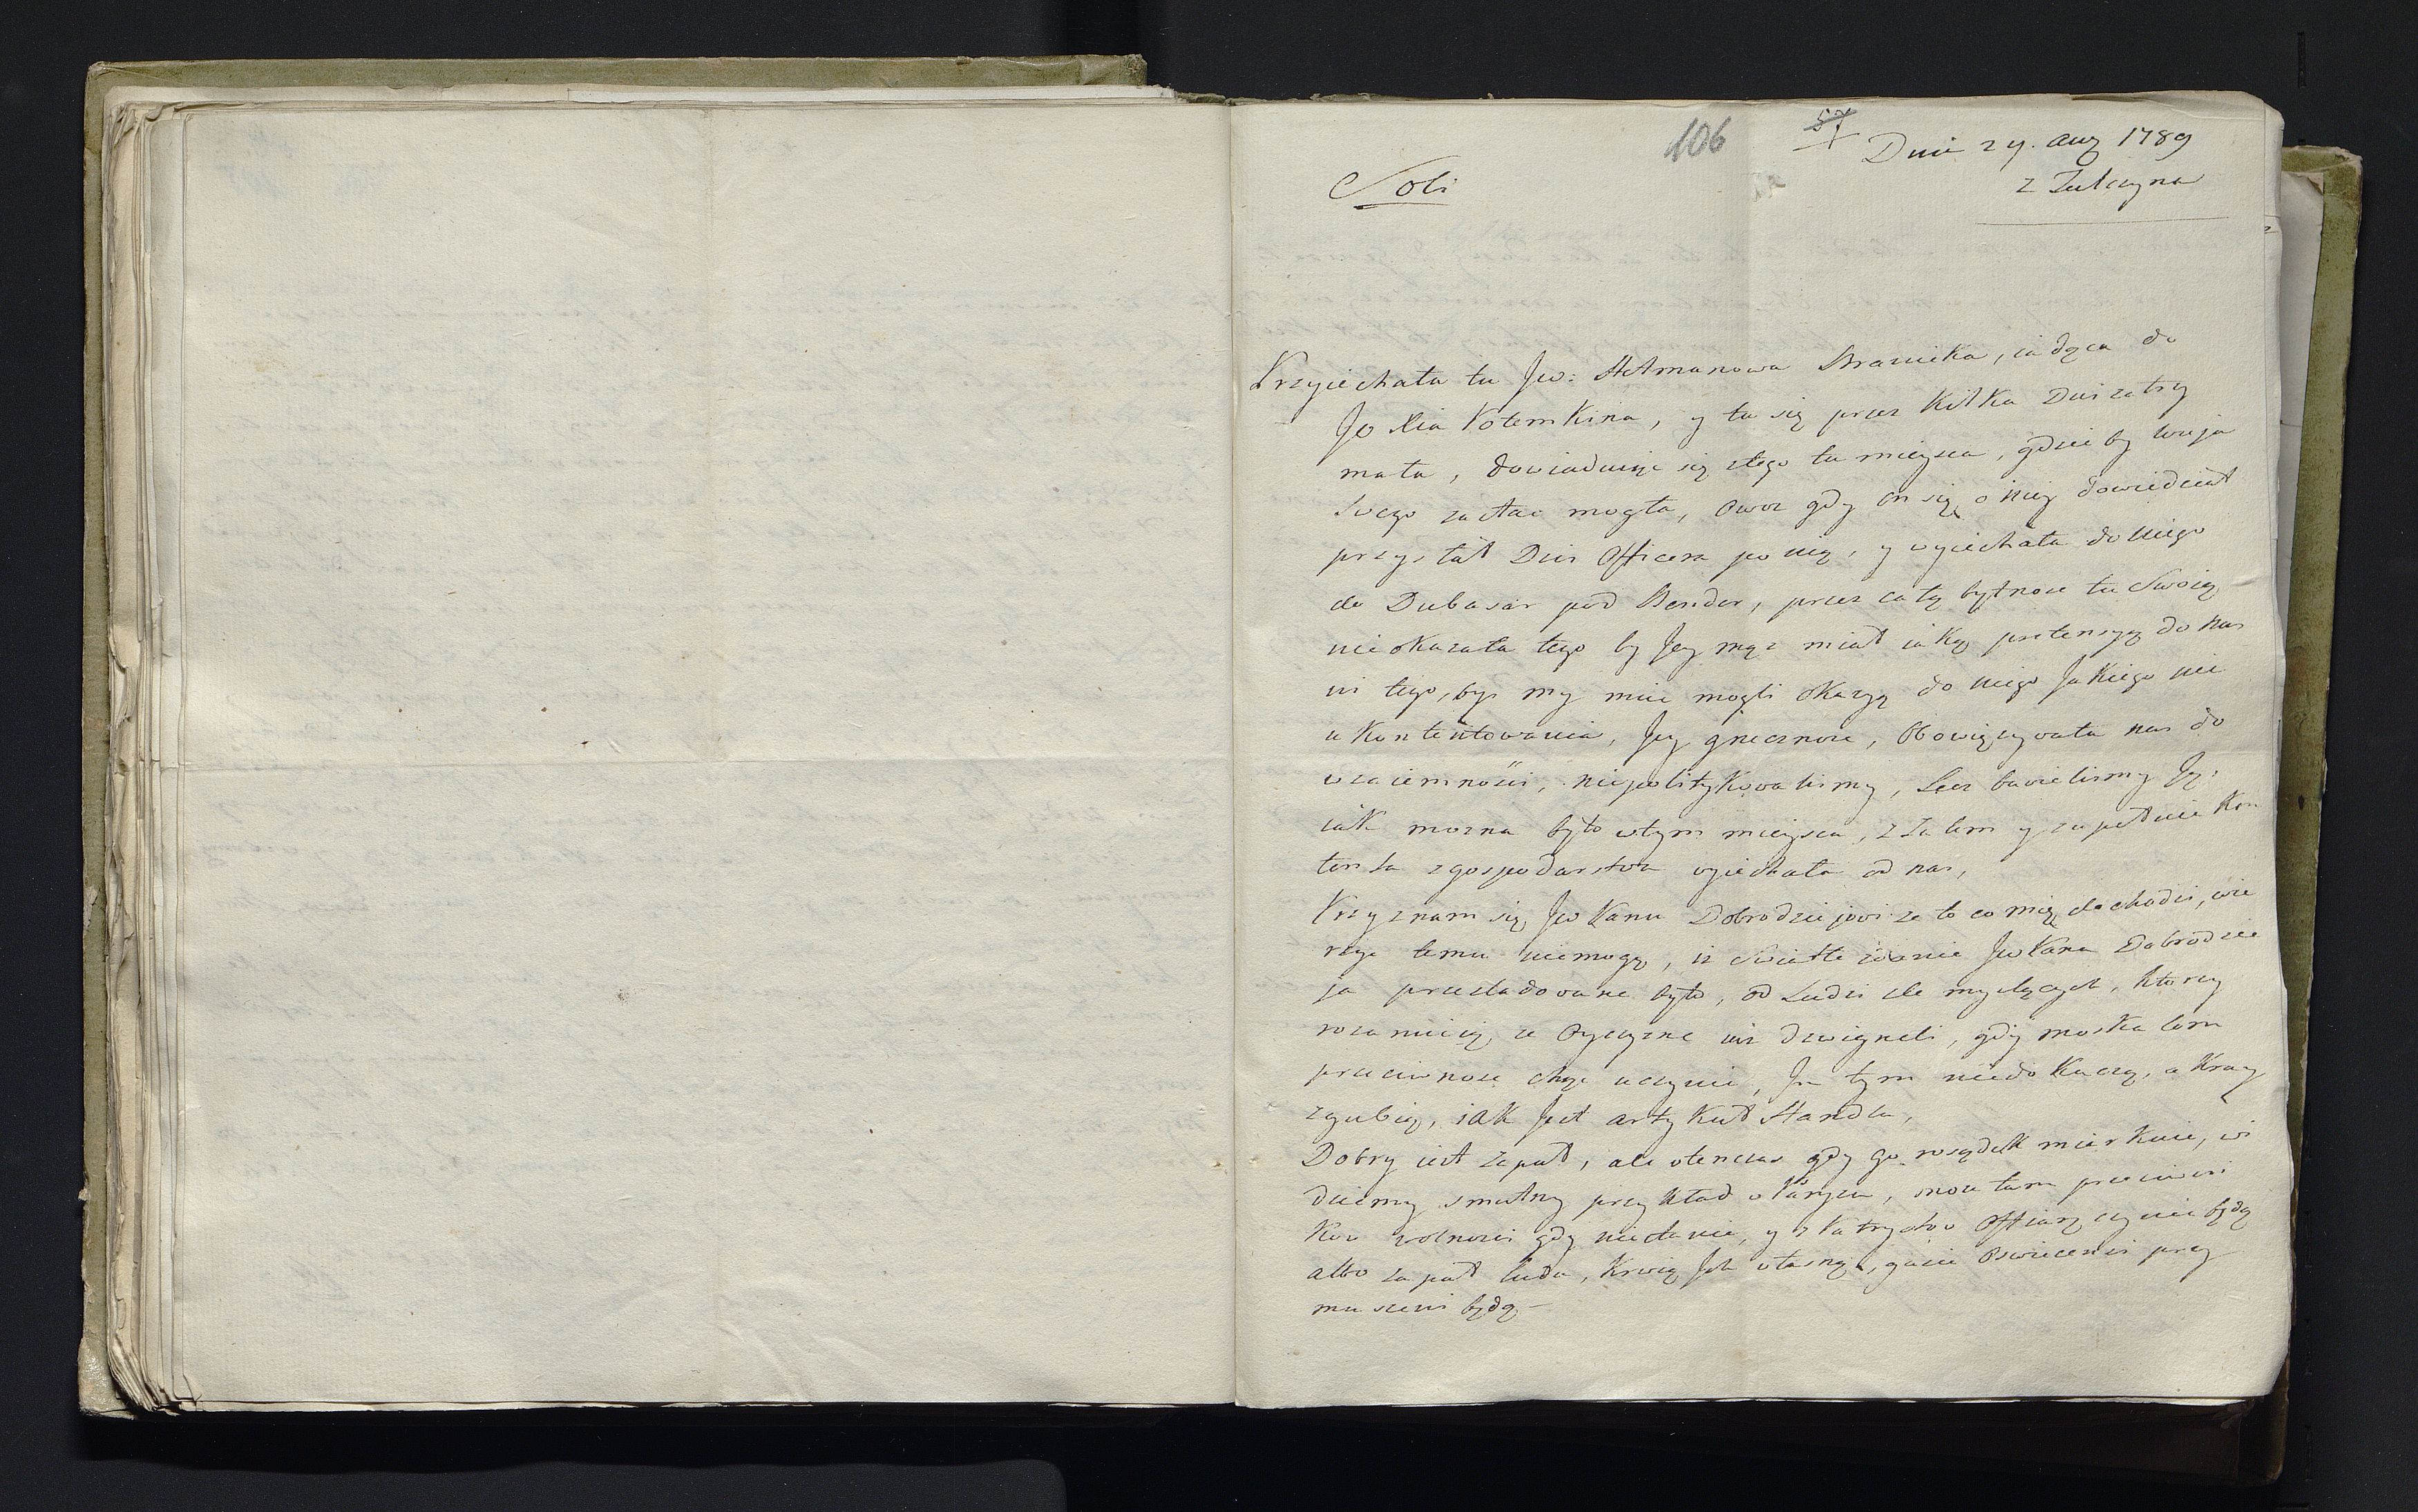 106
57
Dnia 29. aug 1789
z Tulczyna
Soli
Przyiechała tu Jw: Hetmanowa Branicka, iadąca do
Jo Xia Potemkina, y tu się przez kilka Dni zatrzy
mała, dowiaduiąc się z tego tu mieysca, gdzie by wuja
swego zastac mogła, owoz gdy on się o niey dowiedział
przysłał Dziś Officera po nią, y wyiechała do niego
do Dubasar pod Bender, przez całą bytnosc tu Swoią
nie okazała tego by Jey mąz miał iaką pretensyą do nas
ni tego, bys my mieć mogli okazyą do niego Jakiego nie
ukontentowania, Jey grzecznosc, obowięzywała nas do
wzaiemności, niepolitykowalismy, Lecz bawielismy Ją,
iak mozna było w tym mieyscu, z tą tem y zupełnie kon
tenta z gospodarstwa wyiechała od nas,
Przyznam się Jw Panu Dobrodziejowi ze to co mię dochodzi, wie
rzyc temu niemogę, iz Swiatłe zdanie Jw Pana Dobrodzie
ja przesladowane było, od Ludzi zle myslących, ktorzy
rozumieią ze Oyczyznę iuz dzwigneli, gdy moskalom
przeciwnosc chcą uczynic, Im tym niedokuczą, a kray
zgubią, iak Jest artykuł Handlu,
Dobry iest zapał, ale wtenczas gdy go rosądek miarkuie, wi
dziemy smutny przykład w Paryzu, moze tam przeciwni
kow wolnosci gdy nie stanie, y z Patryotow Offiarę czynic będą
albo zapał ludu, krwią Ich własną, gasic Oswieceńsi przy
muszeni będą —